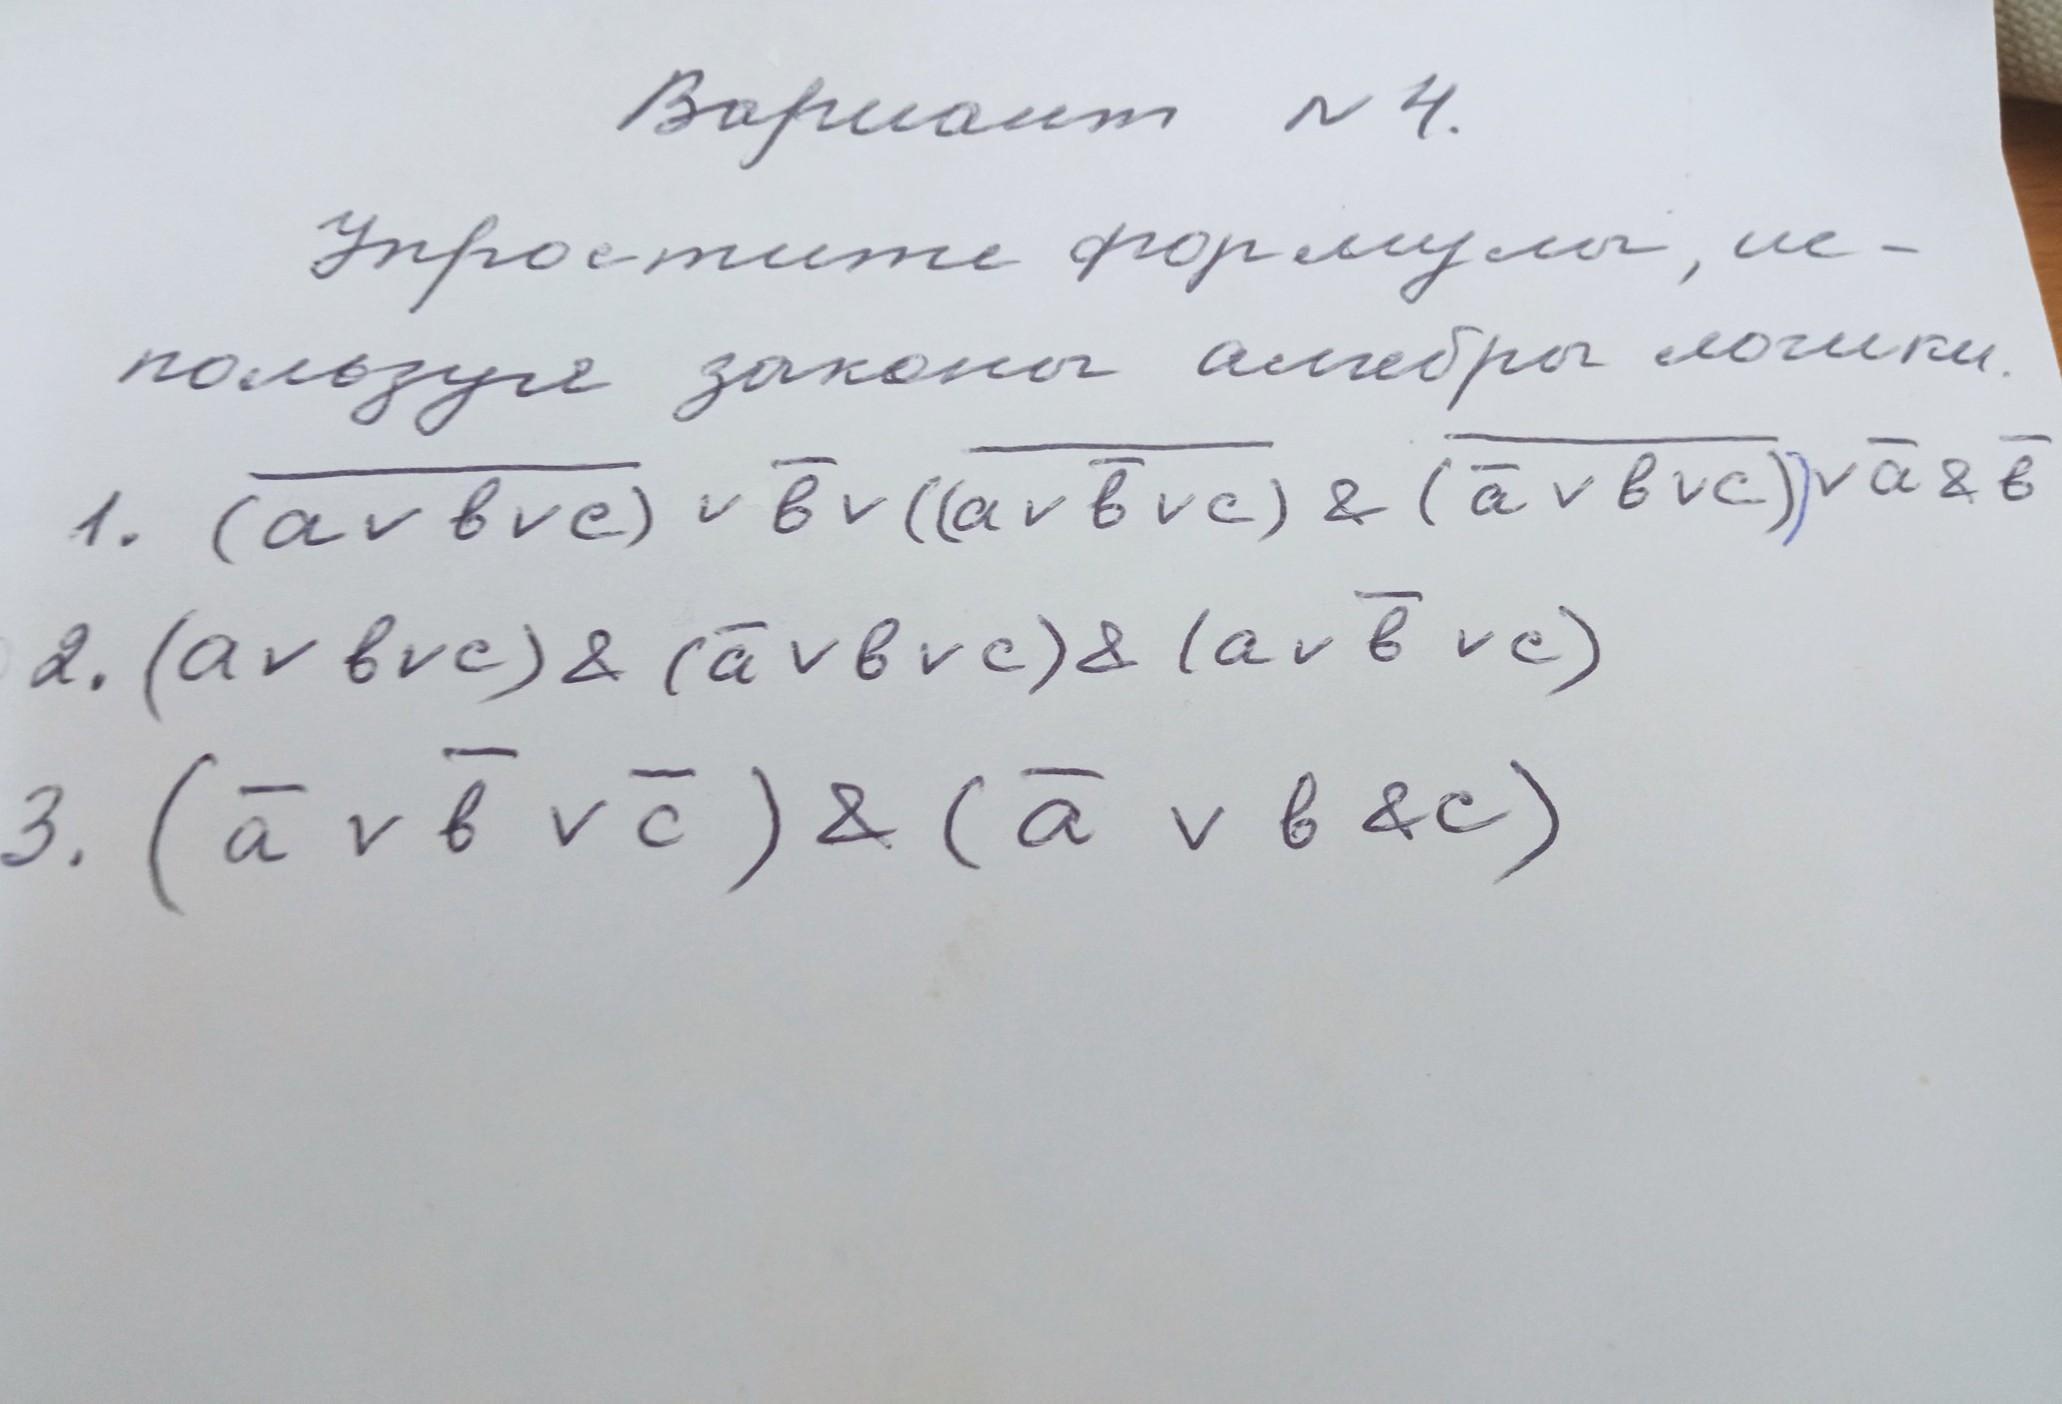 Вариант N 4.
Упростите формулы, ис-
пользуя законы алгебры логики.
1. (a̅ ̅v̅ ̅b̅ ̅v̅ ̅c̅) v b̅ v ((a̅ ̅v̅ ̅b̅̅ ̅v̅ ̅c̅) & (a̅̅ ̅v̅ ̅b̅ ̅v̅ ̅c̅)) v a̅ & b̅
2. (a v b v c) & (a̅ v b v c) & (a v b̅ v c)
3. (a̅ v b̅ v c̅) & (a̅ v b & c)